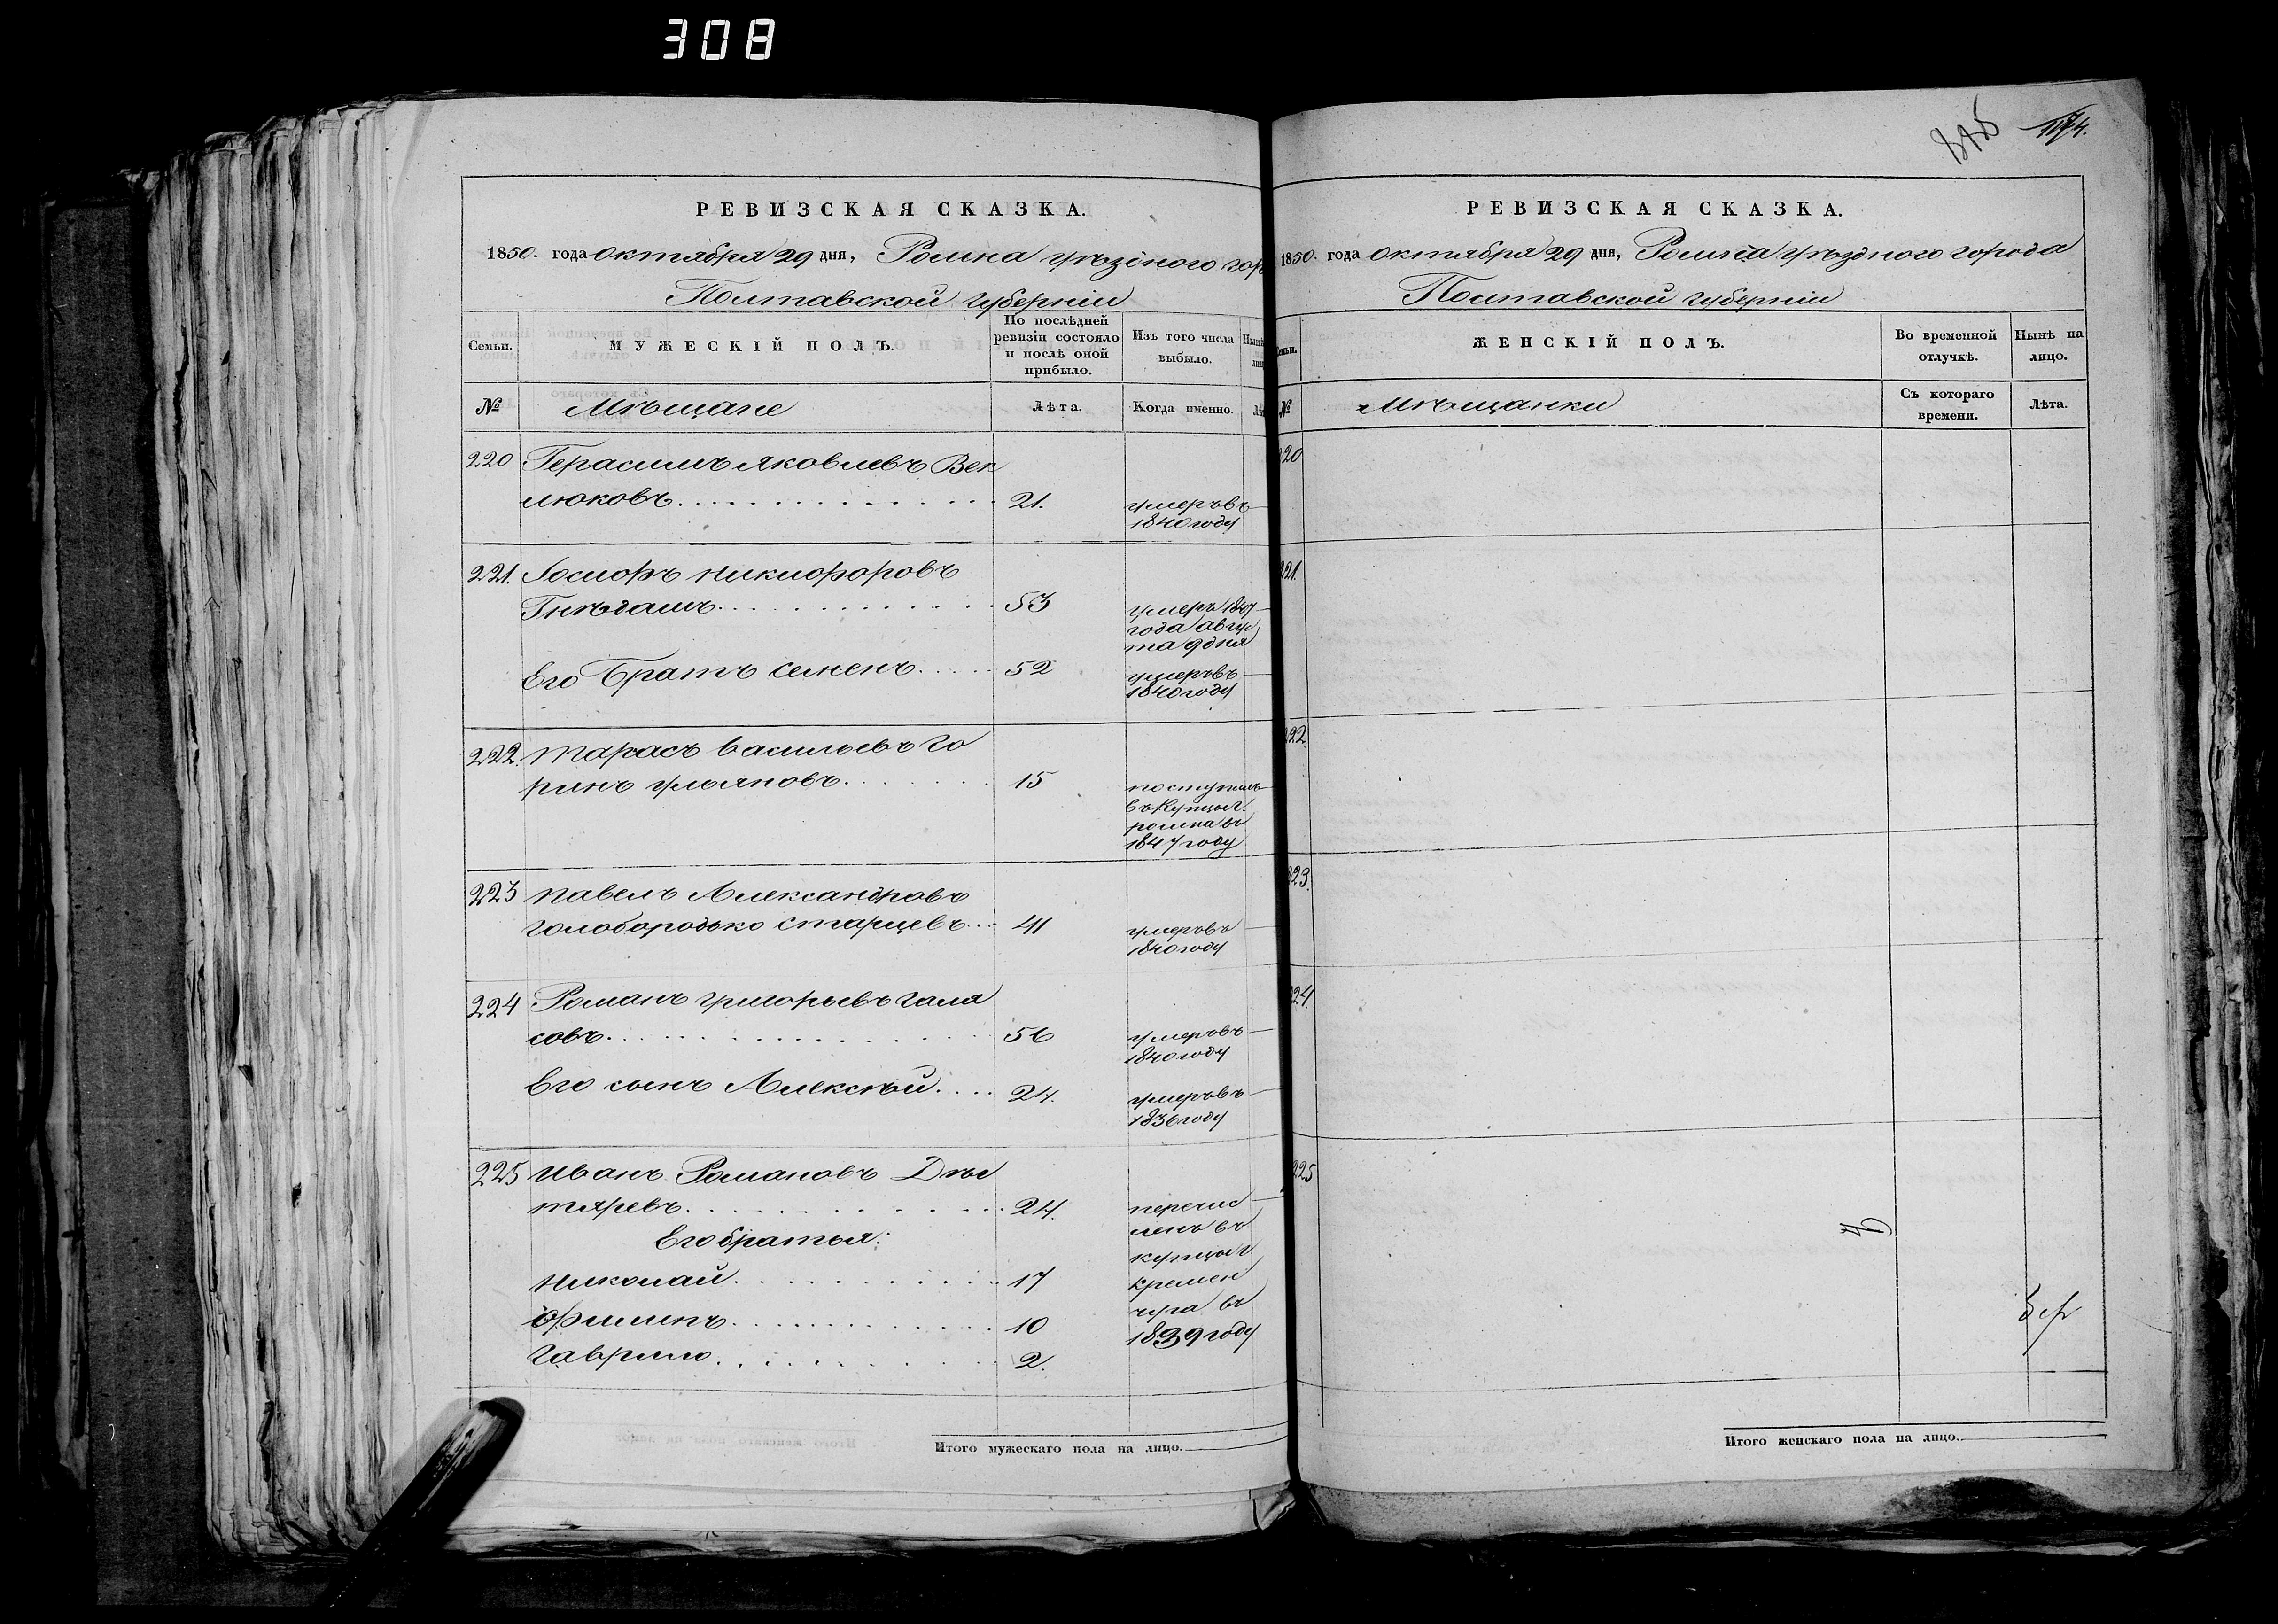 308
РЕВИЗСКАЯ СКАЗКА.
1850. года октября 29 дня, Ромна уѣзднаго гор
Полтавской губерніи
Семьи.
МУЖЕСКІЙ ПОЛЪ.
По послѣдней
ревизіи состояло
и послѣ оной
прибыло.
Изъ того числа
выбыло.
№
Мѣщане
Лѣта.
Когда именно.
220 Герасимъ Яковлевъ Век
люковъ 21. умеръ въ
1840 году
221. Іосифъ Никифоровъ
Гнѣдашъ 53 умеръ 1847
года авгус
та 9 дня
Его Братъ Семенъ 52 умеръ въ
1840 году
222. Тарасъ Васильевъ Го
ринъ Ульяновъ 15 поступилъ
въ Купцы г.
ромна въ
1847 году
223 Павелъ Александровъ
Голобородько Старцевъ 41 умеръ въ
1840 году
224 Романъ Григорьевъ Галя
совъ 56 умеръ въ
1840 году
Его сынъ Алексѣй 24. умеръ въ
1836 году
225 Иванъ Романовъ Дѣг
тяревъ 24. перечис
ленъ въ
Его братья:
купцы г
Николай 17 Кремен
чуга въ
Филипъ 10 1839 году
Гаврило 2.
Итого мужескаго пола на лицо.
174.
РЕВИЗСКАЯ СКАЗКА.
1850. года октября 29 дня, Ромна уѣзднаго города
Полтавской губерніи
ЖЕНСКІЙ ПОЛЪ.
Во временной
отлучкѣ.
Нынѣ на
лицо.
№
Мѣщанки
Съ котораго
времени.
Лѣта.
20
221.
222.
223.
224.
225
Итого женскаго пола на лицо.